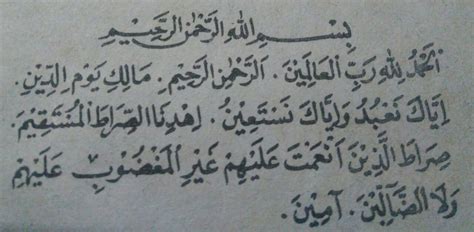 بِسْمِ اللهِ الرَّحْمٰنِ الرَّحِيْمِ
اَلْحَمْدُ لِلّٰهِ رَبِّ الْعَالَمِيْنَ. اَلرَّحْمٰنِ الرَّحِيْمِ. مَالِكِ يَوْمِ الدِّيْنِ.
اِيَّاكَ نَعْبُدُ وَاِيَّاكَ نَسْتَعِيْنُ. اِهْدِنَا الصِّرَاطَ الْمُسْتَقِيْمَ.
صِرَاطَ الَّذِيْنَ اَنْعَمْتَ عَلَيْهِمْ غَيْرِ الْمَغْضُوْبِ عَلَيْهِمْ
وَلَا الضَّآلِّيْنَ. آمِيْنَ.